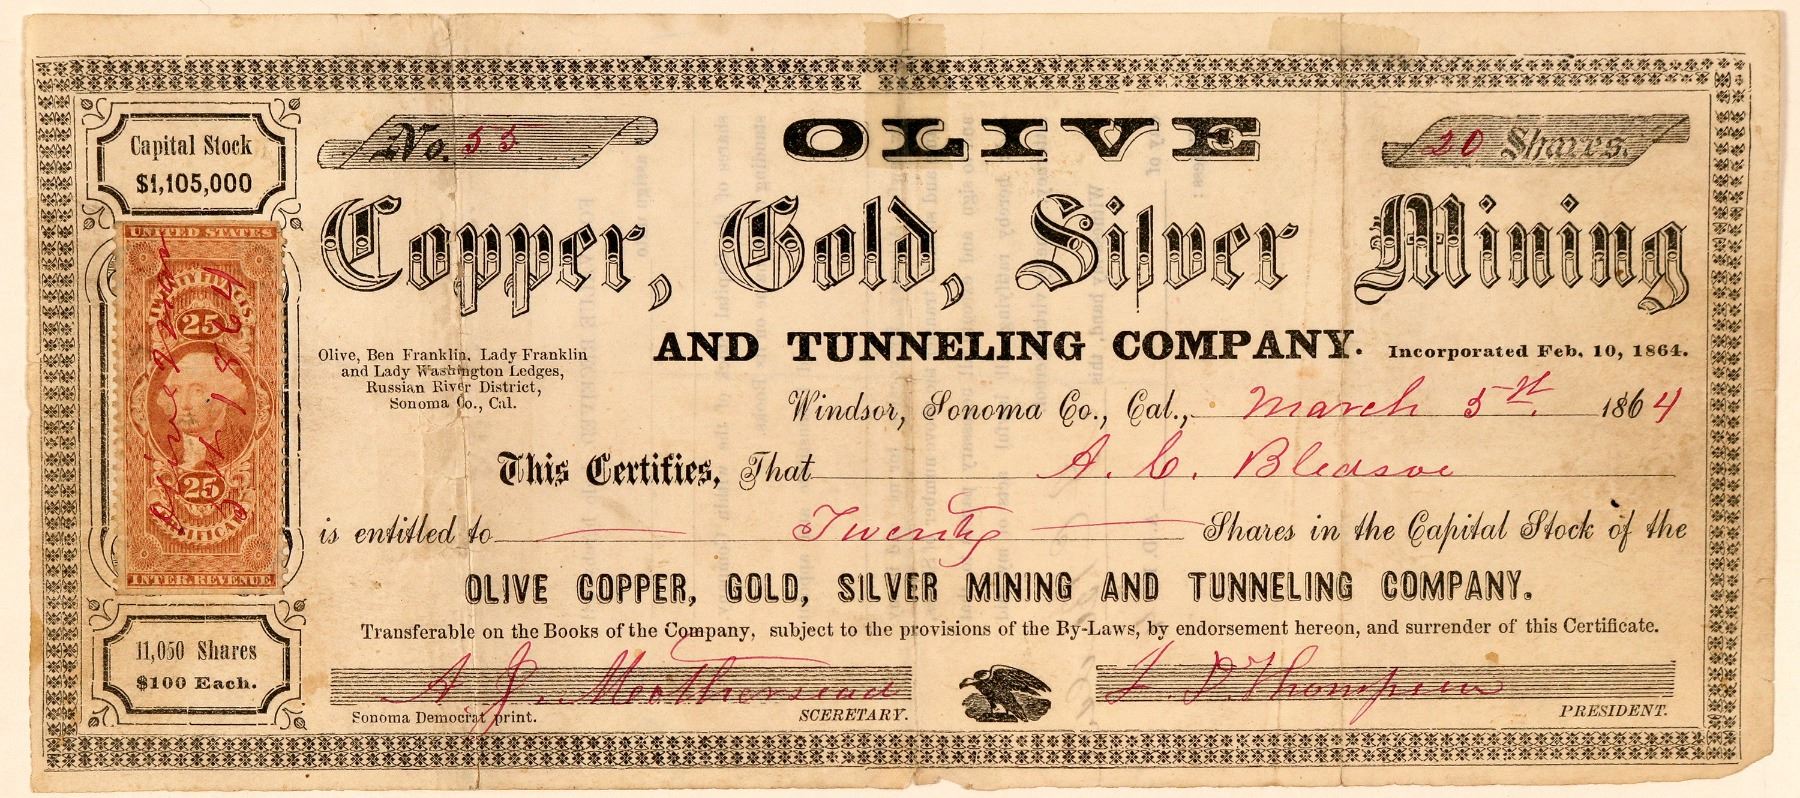 Capital Stock
$1,105,000
No. 55
OLIVE
20 Shares.
Copper, Gold, Silver Mining
AND TUNNELING COMPANY.
Incorporated Feb. 10, 1864.
Olive, Ben Franklin, Lady Franklin
and Lady Washington Ledges,
Russian River District,
Sonoma Co., Cal.
Windsor, Sonoma Co., Cal., March 5th 1864
This Certifies, That A. C. Bledsoe
is entitled to Twenty Shares in the Capital Stock of the
OLIVE COPPER, GOLD, SILVER MINING AND TUNNELING COMPANY.
Transferable on the Books of the Company, subject to the provisions of the By-Laws, by endorsement hereon, and surrender of this Certificate.
UNITED STATES
TWENTY FIVE CTS.
25
25
CERTIFICATE
INTER. REVENUE
11,050 Shares
$100 Each.
A. J.
Thompson
Sonoma Democrat print.
SCERETARY.
PRESIDENT.